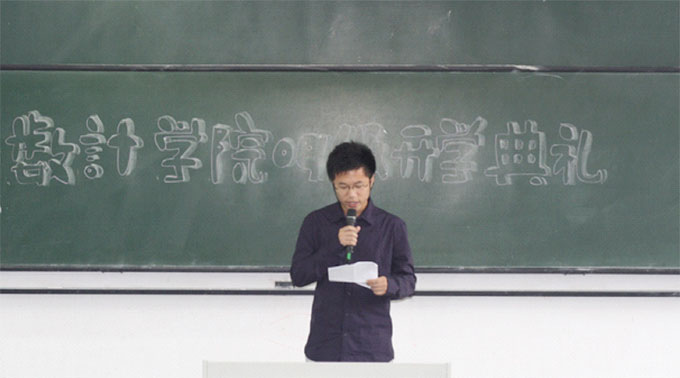 数計学院开学典礼